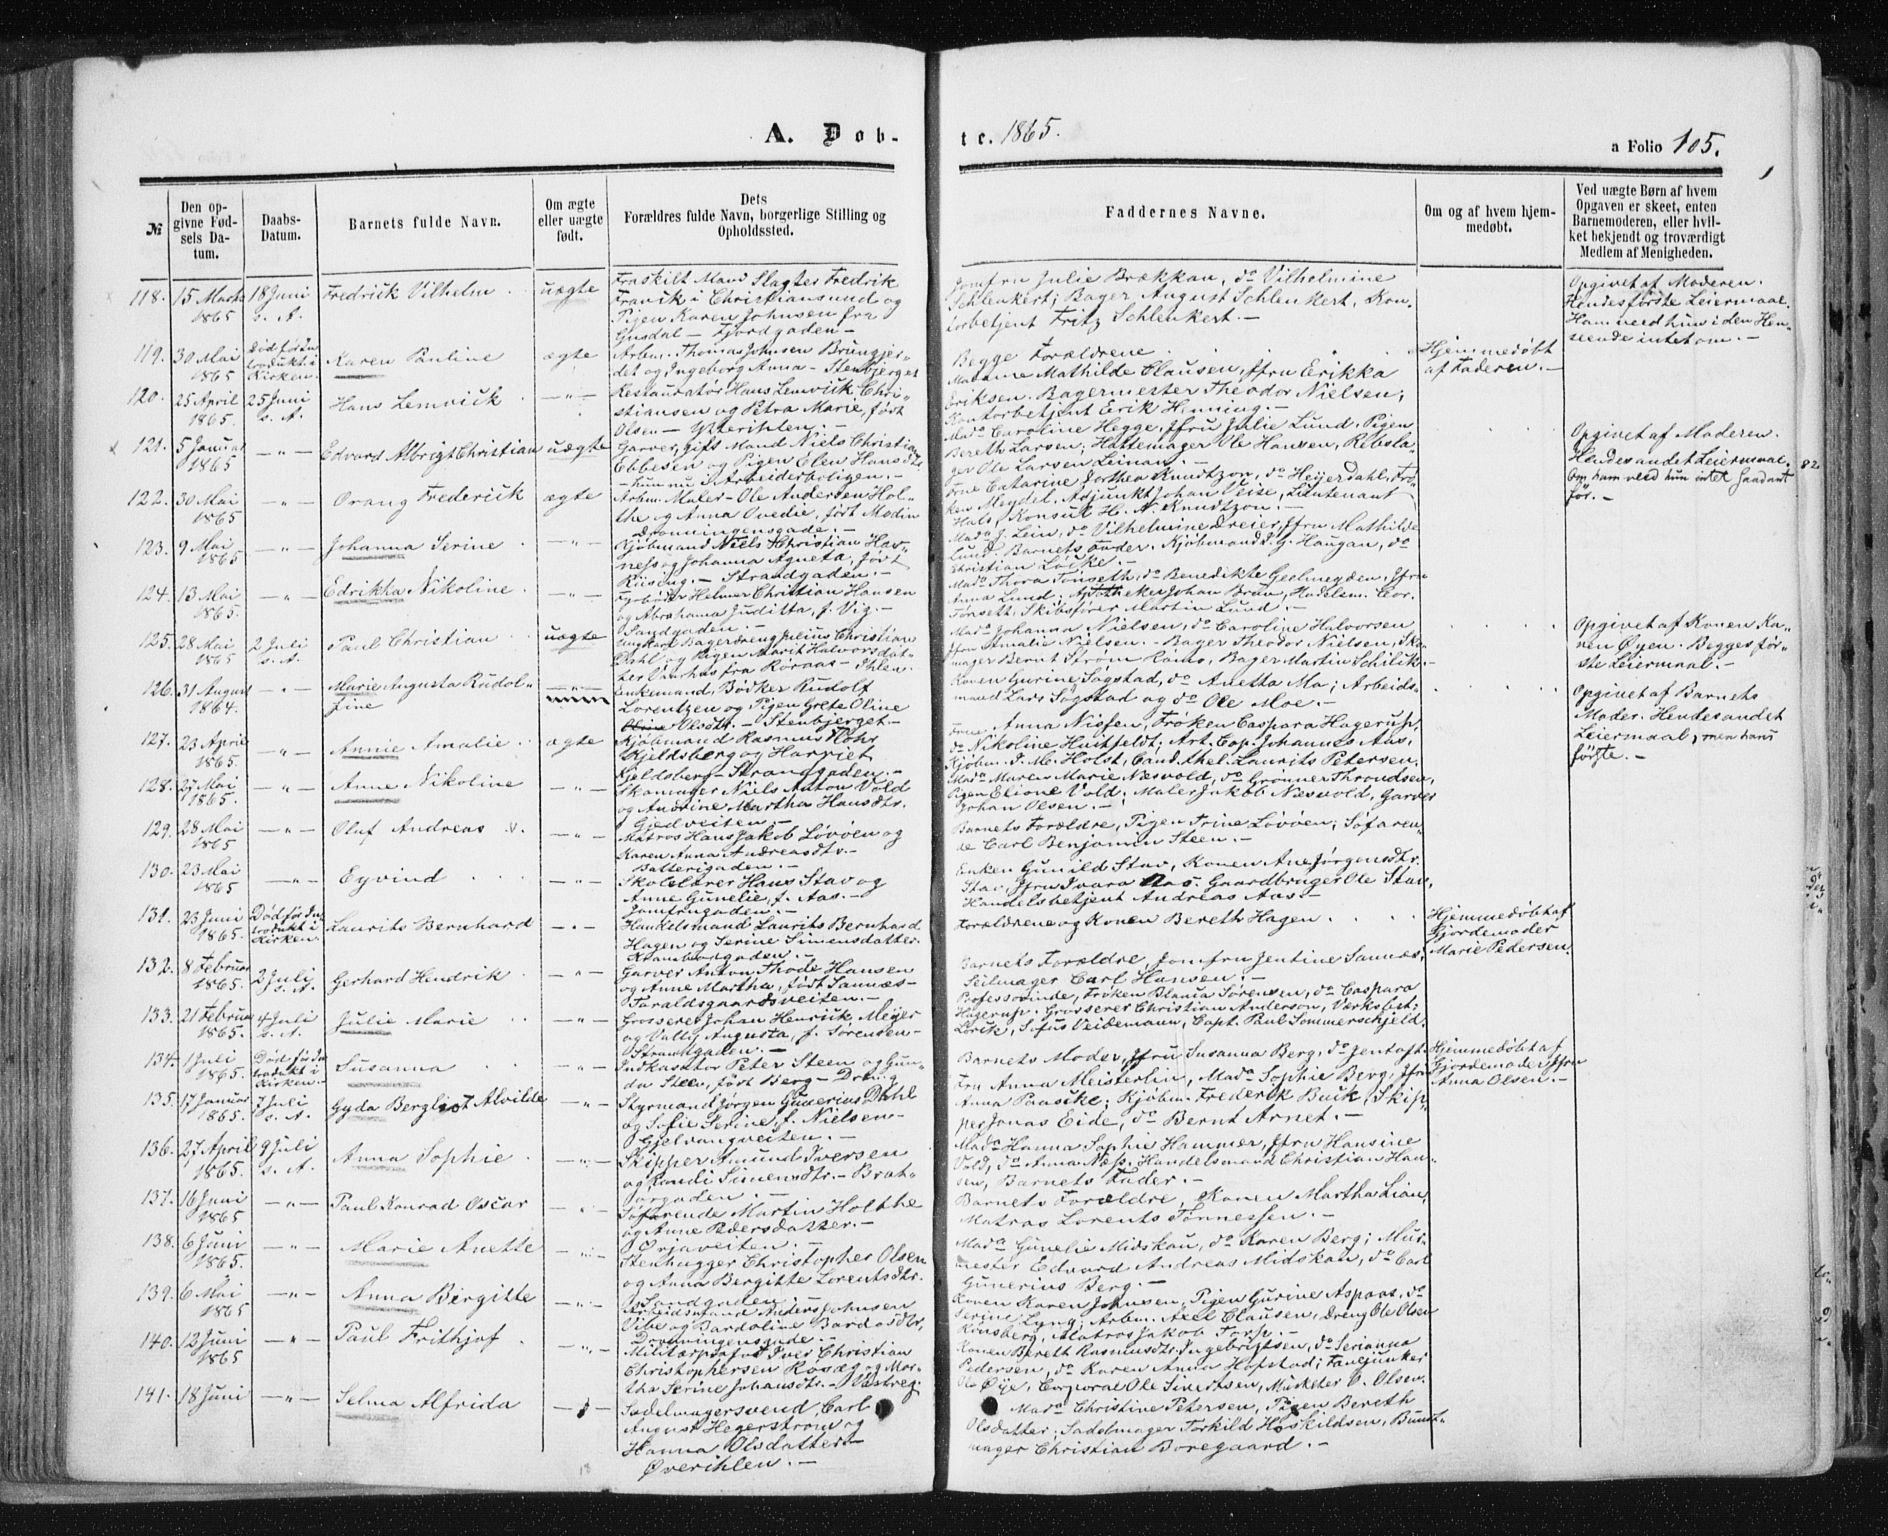 A. Døb-
te. 1865.
a Folio 105.
№
Den opgivne Fødsels Datum.
Daabs-Datum.
Barnets fulde Navn.
Om ægte eller uægte født.
Dets Forældres fulde Navn, borgerlige Stilling og Opholdssted.
Faddernes Navne.
Om og af hvem hjemmedøbt.
Ved uægte Børn af hvem Opgaven er skeet, enten Barnemoderen, eller hvilket bekjendt og troværdigt Medlem af Menigheden.
118. 15 Marts 1865 18 Juni s. A. Fredrick Vilhelm uægte
Fraskilt Mand Slagter Fredrik
i Christiansund og
Pigen Karen Johnsen fra
Gusdal – Fjordgaden –
Jomfru Julie Brækkan, do Vilhelmine
Schlenkert; Bager August Schlenkert, Kon-
torbetjent Fritz Schlenkert. –
Opgivet af Moderen.
Hendes første Leiermaal.
Ham veed hun i den Hen-
seende intet om. –
119. 30 Mai 1865 Død før Introdukt i Kirken. Karen Pauline ægte
Arbm. Thomas Johnsen Brungjer-
det og Ingeborg Anna – Stenbjerget
Begge Forældrene.
Hjemmedøbt
af Faderen. –
120. 25 April 1865. 25 Juni s. A. Hans Lemvick – " –
Restauratør Hans Lemvick Chri-
stiansen og Petra Marie, født
Olsen – Ytterihlen. –
Madame Mathilde Clausen, Jfru Erikka
Eriksen. Bagermester Theodor Nielsen;
Kontorbetjent Erik Henning. –
121. 5 Januar 1865 – " – Edvard Albrigt Christian uægte
Garver, gift Mand Niels Christian
Ebbesen og Pigen Elen Hansdtr
– hun nu i Arbeiderboligen. –
Mada Caroline Hegge, Jfru Julie Lund, Pigen
Bereth Larsen; Hattemager Ole Hansen, Rebsla-
ger Ole Larsen Leinan. –
Opgivet af Moderen.
Hendes andet Leiermaal.
Om ham veed hun intet saadant
før. –
122. 30 Mai 1865 – " – Orang Frederick ægte
Arbm. Maler – Ole Andersen Hol-
the og Anna Ovedie, født Modin
Dronningensgade. –
Frue Catarine Jorthea Knudtzon, do Heyerdahl, Frø-
ken Meydel. Adjunkt Johan Veise, Lieutenant
Hals, Konsul H. N. Knudtzon. –
123. 9 Mai 1865 – " – Johanna Serine – " –
Kjøbmand Niels Christian Hav-
nes og Johanna Agneta, født
Riising. – Strandgaden. –
Mada J. Lein, do Vilhelmine Dreier, Jfru Mathilde
Lund. Barnets Fader. Kjøbmand S. G. Haugan, do
Christian Løcke. –
124. 13 Mai 1865. – " – Edrikka Nikoline – " –
Fyrbøder Helmer Christian Hansen
og Abrahama Juditta, f. Vig. –
Sandgaden. –
Mada Thora Tønseth, do Benedikte Geelmeyden, Jfru
Anna Lund; Apotheker Johan Brun, Handelsm. Cor.
Tønseth. Skibsfører Martin Lund. –
125. 28 Mai 1865 2 Juli s. A. Paul Christian uægte
Ungkarl Bagerdreng Julius Christian
Dahl og Pigen Marit Halvorsdat-
ter Aarhus fra Røraas – Ihlen.
Mada Johanna Nielsen, do Caroline Halvorsen
Jfru Amalie Nielsen – Bager Theodor Nielsen, Sko-
mager Bernt Strøm Romo, Bager Martin Schilik. –
Opgivet af Konen Ka-
ren Øyen. Begges før-
ste Leiermaal. –
126. 31 August 1864. – " – Marie Augusta Rudol-
fine – " –
Enkemand, Bødker Rudolf
Lorentzen og Pigen Grete Oline
Olsdtr. – Stenbjerget –
Konen Gurine Sogstad, do Anetta Mo; Arbeids-
mand Lars Sogstad og do Ole Moe. –
Opgivet af Barnets
Moder. Hendes andet
Leiermaal, men hans
første. –
127. 23 April 1865. – " – Annie Amalie ægte
Kjøbmand Rasmus Rohr
Kjeldsberg og Harriet
Kjeldsberg – Strandgaden. –
Frue Anna Nissen, Frøken Caspara Hagerup,
do Nikoline Huitfeldt; Art. Cap. Johannes Aas,
Kjøbm. J. M. Holst, Cand. Axel Laurits Petersen.
128. 27 Mai 1865. – " – Anne Nikoline – " –
Skomager Niels Anton Vold
og Andrine Martha Hansdtr.
Gjedveiten. –
Mada Maren Marie Næsvold, do Grønner Throndsen,
Pigen Elione Vold; Maler Jakob Næsvold, Garver
Johan Olsen. –
129. 28 Mai 1865 – " – Oluf Andreas – " –
Matros Hans Jakob Løvøen og
Karen Anna Andreasdtr. –
Batterigaden. –
Barnets Forældre, Pigen Trine Løvøen; Søfaren-
de Carl Benjamin Steen. –
130. 23 Mai 1865 – " – Eyvind – " –
Skolelærer Hans Stav og
Anne Gunelie, f. Aas. –
Jomfrugaden. –
Enken Gunild Stav, Konen Ane Jørgensdtr.
Stav, Jfru Ivara Aas. Gaardbruger Ole Stav,
Handelsbetjent Andreas Aas. –
131. 23 Juni 1865. Død før Introdukt i Kirken. Laurits Bernhard – " –
Handelsmand Laurits Bernhard
Hagen og Serine Simensdatter.
Krambodgaden. –
Forældrene og Konen Bereth Hagen
Hjemmedøbt af
Gjordemoder
Marie Pedersen.
132. 8 Februar 1865. 2 Juli s. A. Gerhard Hendrik – " –
Garver Anton Thode Hansen
og Anne Martha, født Sannæs –
Taraldsgaardsveiten. –
Barnets Forældre, Jomfru Jentine Sannæs,
Seilmager Carl Hansen. –
133. 21 Februar 1865. 4 Juli s. A. Julie Marie – " –
Grosserer Johan Henrick Meyer
og Vally Augusta, f. Sørensen –
Strandgaden. –
Professorinde, Frøken Blanca Sørensen, do Caspara
Hagerup. Grosserer Christian Anderson, Værksbest.
Lorck, Sifus Veidemann, Capt. Paul Sommerschjeld.
134. 1 Juli 1865. Død før Introdukt i Kirken. – Susanna – " –
Indkasator Peter Steen og Gun-
da Steen, født Berg – Drong
Barnets Moder, Jfru Susanna Berg, do Jentoft.
Hjemmedøbt af
Gjordemoder Jfru
Anna Olsen. –
135. 17 Januar 1865. 7 Juli s. A. Gyda Bergliot Alvilde – " –
Styrmand Jørgen Gunerius Dahl
og Sofie Serine f. Nielsen –
Gjelvangveiten. –
Fru Anna Meisterlin, Mada Sophie Berg, Jfru
Anna Paasike; Kjøbm. Frederik Buck, Skip-
per Jonas Eide, do Bernt Arnet. –
136. 27 April 1865. 9 Juli s. A. Anna Sophie – " –
Skipper Amund Iversen
og Randi Simensdtr. – Brat-
ørgaden. –
Mada Hanna Sophie Hammer, Jfru Hansine
Vold, do Anna Næss. Handelsmand Christian Han-
sen, Barnets Fader. –
137. 16 Juni 1865 – " – Paul Konrad Oscar – " –
Søfarende Martin Holthe
og Anne Pedersdatter. –
Ørjaveiten. –
Barnets Forældre, Konen Martha Lian,
Matros Lorents Tønnessen. –
138. 6 Juni 1865. – " – Marie Anette – " –
Stenhugger Christopher Olsen
og Anna Bergitte Lorentsdtr.
Sandgaden. –
Mada Gunelie Midskau, do Karen Berg; Mur-
mester Edvard Andreas Midskau, do Carl
Gunerius Berg. –
139. 6 Mai 1865 – " – Anna Birgitte – " –
Arbeidsmand Anders Johnsen
Vibe og Bardoline Bardosdtr.
Dronningensgade. –
Konen Karen Johnsen, Pigen Gurine Aspaas, do
Serine Lyng; Arbm. Axel Clausen, Dreng Ole Olsen
Kongsberg, Matros Jakob Torp. –
140. 12 Juni 1865 – " – Paul Frithjof – " –
Militærprofos Iver Christian
Christophersen Rosæg og Mar-
tha Serine Johansdtr. – Vestreg.
Konen Bereth Rasmusdtr Ingebrigtsen, do Serianna
Pedersen, do Karen Anna Hofstad; Fanejunker
Ole Øye, Corporal Ole Sivertsen, Musketer O. Olsen.
141. 18 Juni – " – Selma Alfrida – " –
Sadelmagersvend, Carl
August Hegerstrøm og
Hanna Olsdatter –
Øverihlen. –
Mada Christine Petersen, Pigen Bereth
Olsdatter; Sadelmager Torkild Hoskildsen, Bunt-
mager Christian Boregaard. –